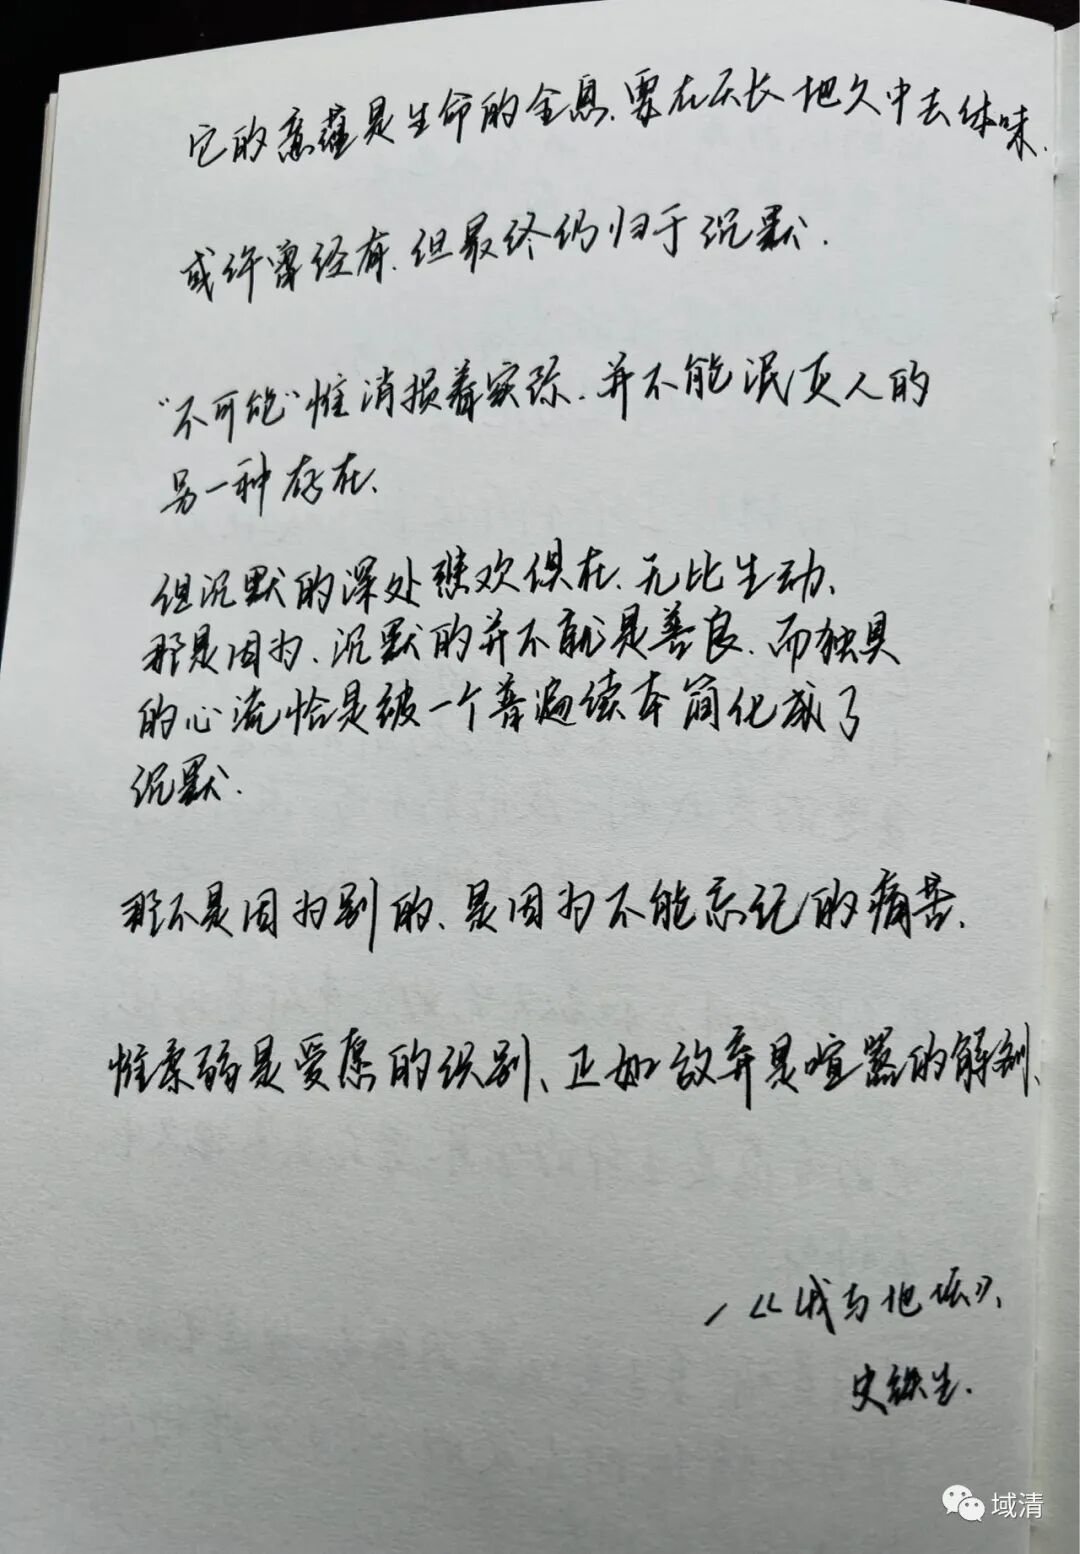 它的意蕴是生命的全息.要在天长地久中去体味.
或许曾经有.但最终仍归于沉默.
"不可能"惟消损着实际.并不能泯灭人的
另一种存在.
但沉默的深处悲欢俱在.无比生动.
那是因为.沉默的并不就是善良.而独具
的心流恰是被一个普遍读本简化成了
沉默.
那不是因为别的.是因为不能忘记的痛苦.
惟柔弱是爱愿的识别、正如放弃是喧嚣的解剖、
—《我与地坛》、
史铁生.
域清